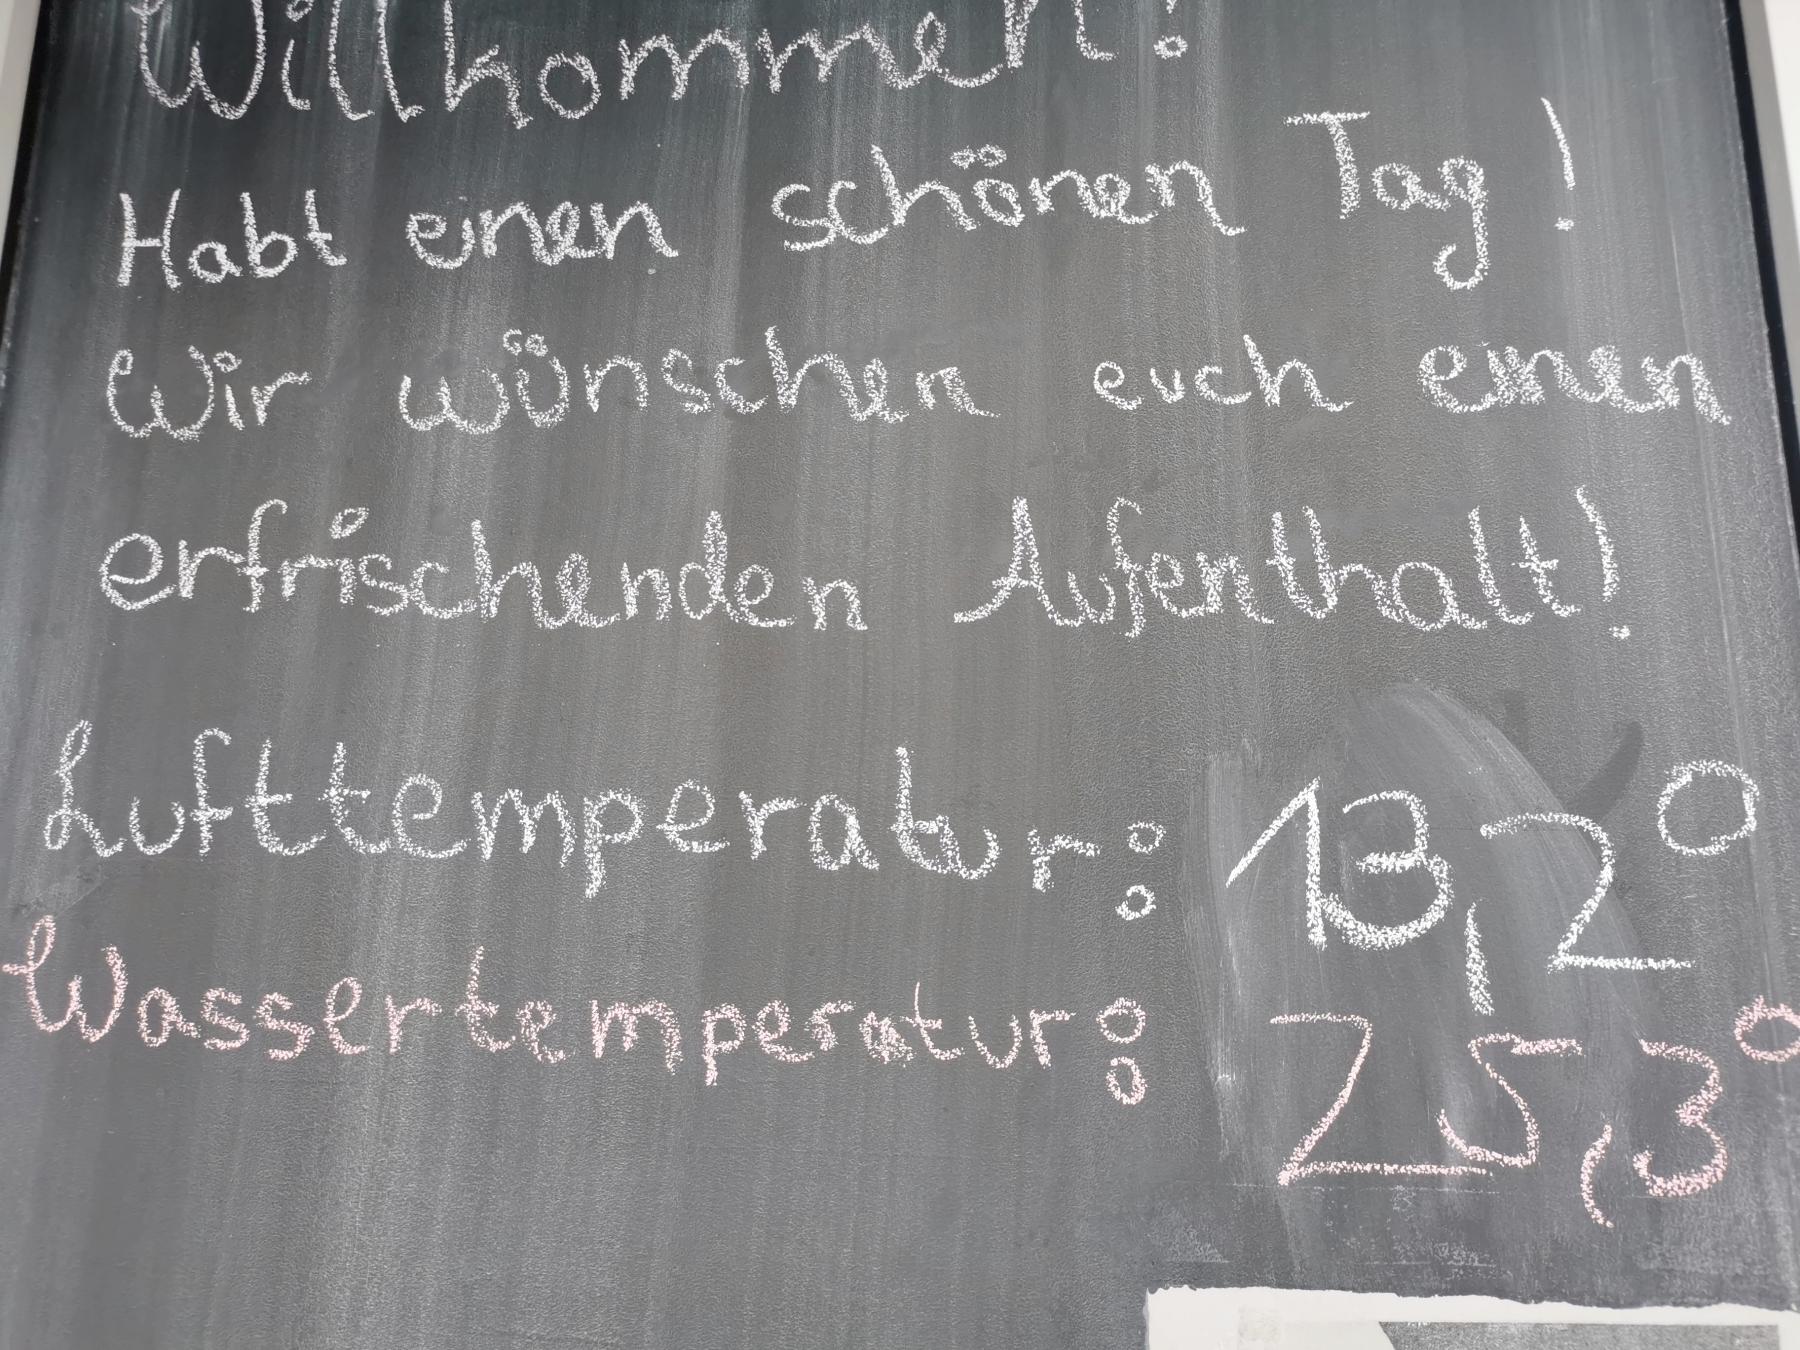 Willkommen!
Habt einen schönen Tag!
Wir wünschen euch einen
erfrischenden Aufenthalt!
Lufttemperatur: 13,2°
Wassertemperatur: 25,3°